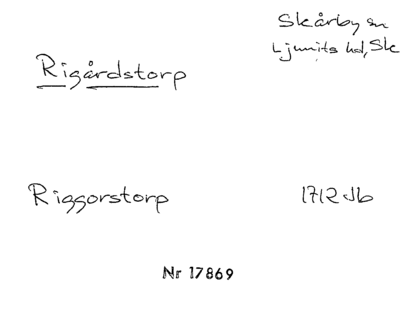 Skårby sn
Ljunits hd, Sk
Rigårdstorp
Riggorstorp 1712 Jb
Nr 17869